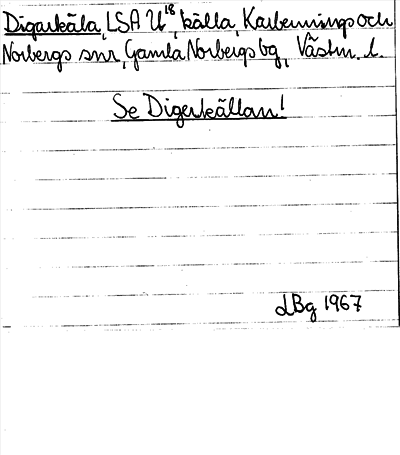 Digarkäla, LSA U18, källa, Karbennings och
Norbergs snr, Gamla Norbergs bg, Västm. l.
Se Digerkällan!
LBg 1967